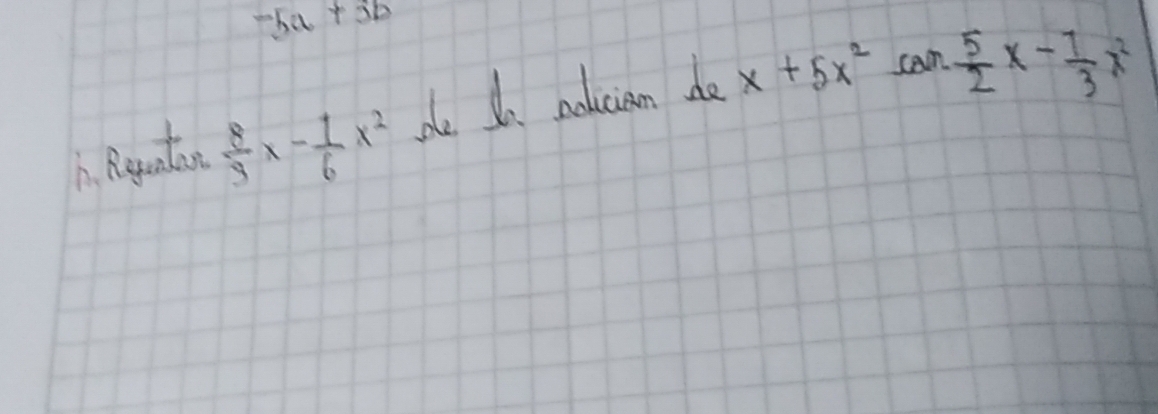 -5a + 3b
h. Restar 8/9 x - 1/6 x² de la adicion de x + 5x² con 5/2 x - 7/3 x²